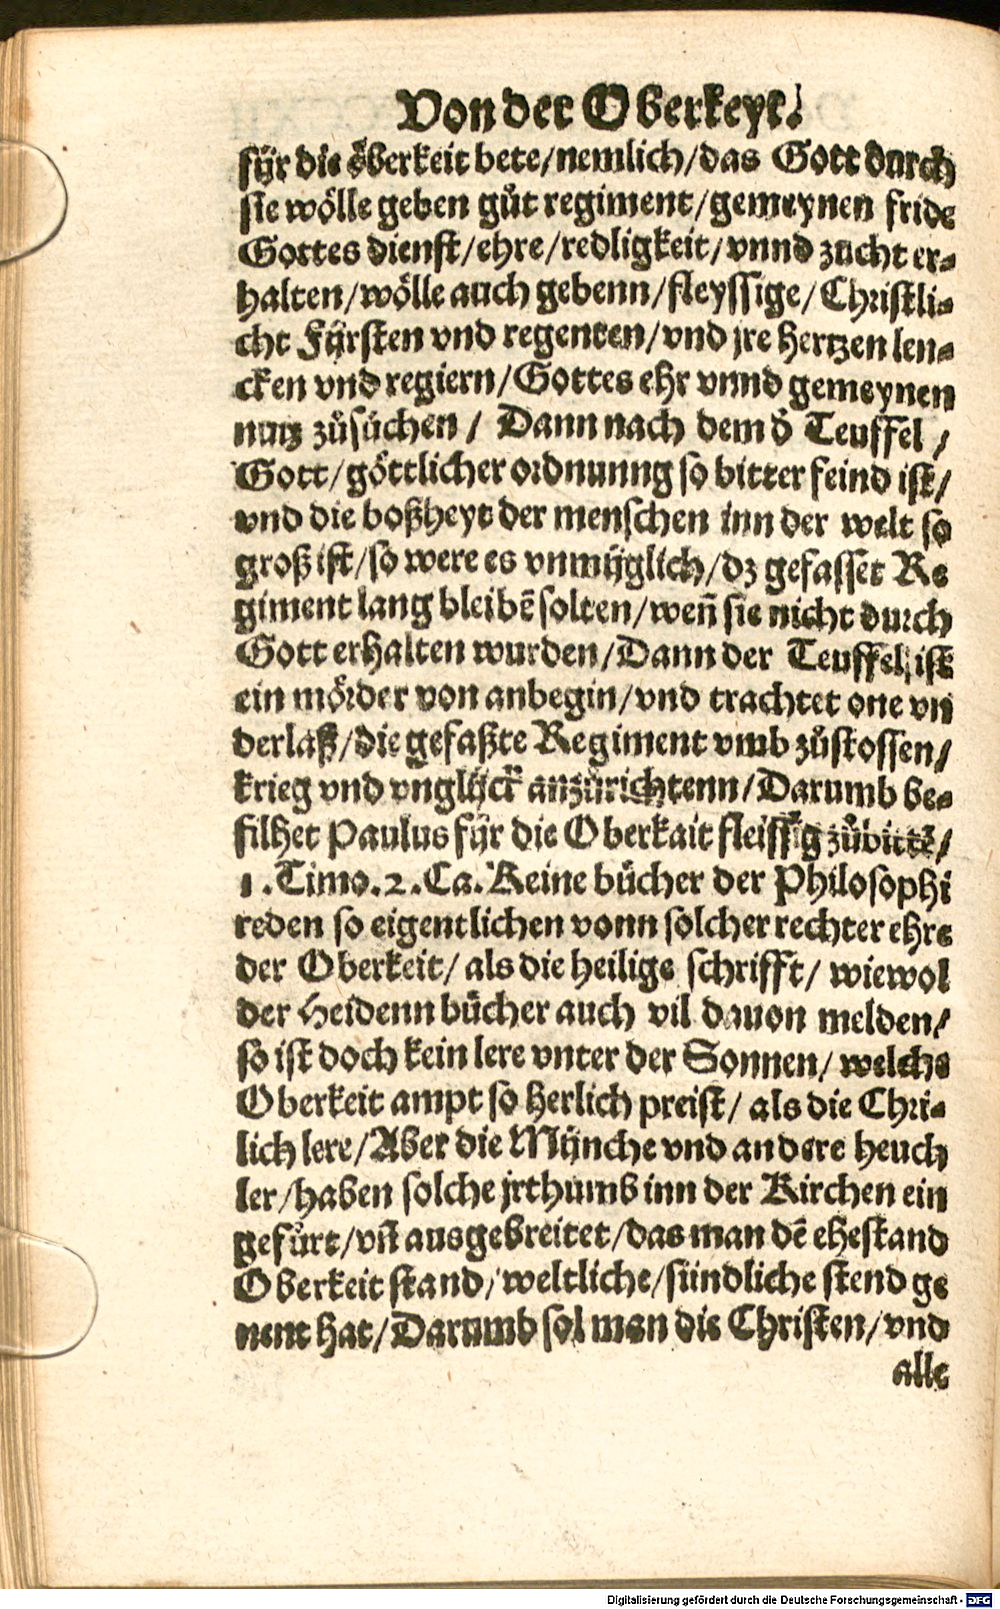 Von der Oberkeyt.
fŭr die oͤberkeit bete/nemlich/das Gott durch
sie woͤlle geben guͦt regiment/gemeynen fride
Gottes dienst/ehre/redligkeit/vnnd zucht er⸗
halten/woͤlle auch gebenn/fleyssige/Christli⸗
che Fŭrsten vnd regenten/vnd jre hertzen len⸗
cken vnd regiern/Gottes ehr vnnd gemeynen
nutz zuͦsuͦchen/ Dann nach dem d᷎ Teuffel/
Gott/goͤttlicher ordnunng so bitter feind ist/
vnd die boßheyt der menschen inn der welt so
groß ist/so were es vnmŭglich/dz gefasset Re
giment lang bleibē solten/weñ sie nicht durch
Gott erhalten wurden/Dann der Teuffel ist
ein moͤrder von anbegin/vnd trachtet one vn
derlaß/die gefaßte Regiment vmb zuͦstossen/
krieg vnd vnglŭck anzuͦrichtenn/Darumb be⸗
filhet Paulus fŭr die Oberkait fleissig zuͦbittē/
1.Timo.2.Ca.Keine buͤcher der Philosophi
reden so eigentlichen vonn solcher rechter ehre
der Oberkeit/ als die heilige schrifft/ wiewol
der Heidenn buͤcher auch vil dauon melden/
so ist doch kein lere vnter der Sonnen/ welche
Oberkeit ampt so herlich preist/ als die Chri⸗
lich lere/Aber die Mŭnche vnd andere heuch
ler/haben solche jrthumb inn der Kirchen ein
gefuͦrt/vñ ausgebreitet/das man dē ehestand
Oberkeit stand/weltliche/sündliche stend ge
nent hat/Darumb sol man die Christen/vnd
alle
Digitalisierung gefördert durch die Deutsche Forschungsgemeinschaft - DFG